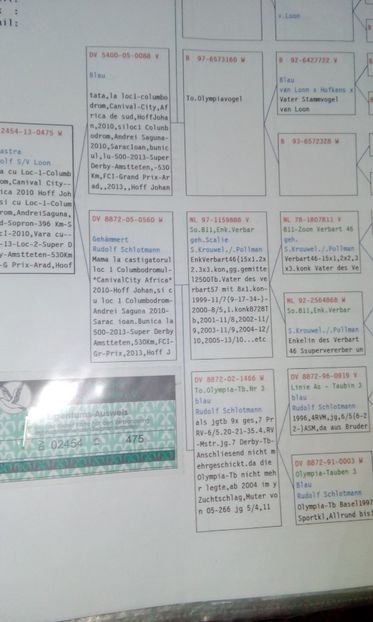 v.Loon
DV 5400-05-0088 V
Blau
tata,la loc1-columbo
drom,Canival-City,Af
rica de sud,HoffJoha
n,2010,siloc1 Colunb
odrom,Andrei Saguna-
2010,SaracIoan,bunic
ul,lu-500-2013-Super
Derby-Amstteten,-530
Km,FCI-Grand Prix-Ar
ad,,2013,,Hoff Johan
B 97-6573160 W
To.Olympiavogel
B 92-6427722 V
Blau
van Loon x Hofkens x
Vater Stammvogel
van Loon
B 93-6572328 W
2454-13-0475 W
astra
olf S/V Loon
m cu Loc-1-Columb
rom,Canival City--
ica 2010 Hoff Joh
si cu Loc-1-Colum
rom,AndreiSaguna,
d-Sopron-396 Km-S
c1-2010,Vara cu--
-13-Loc-2-Super D
y-Amstteten-530Km
-G Prix-Arad,Hoof
DV 8872-05-0560 W
Gehämmert
Rudolf Schlotmann
Mama la castigatorul
loc 1 Columbodromul-
*CanivalCity Africa*
2010-Hoff Johan,si c
u loc 1 Columbodrom-
Andrei Saguna 2010-
Sarac ioan.Bunica la
500-2013-Super Derby
Amstteten,-530Km,FCI-
Gr-Prix,2013,Hoff J
NL 97-1159888 V
So.811,Enk.Verbar
geh.Scalie
S.Krouwel./.Pollmann
EnkVerbart46(15x1.2x
2.3x3.kon,gg.gemitte
12500Tb.Vater des ve
rbart57 mit 8x1.kon-
1999-11/7(9-17-34-)-
2000-8/5,1.konk8728T
b,2001-11/8,2002-11/
9,2003-11/9,2004-12/
10,2005-13/10...etc
NL 78-1807811 V
811-Zoon Verbart 46
geh.
S.Krouwel./.Pollmann
Verbart 46-15x1,2x2,
3x3.konk Vater des Ve
NL 92-2564868 W
So.811,Enk.Verbar
S.Krouwel./.Pollmane
Enkelin des Verbart
46 Ssupervererber un
DV 8872-02-1466 W
To.Olympia-Tb.Nr 3
blau
Rudolf Schlotmann
als jgtb 9x ges,7 Pr
RV-6/5.20-21-35.4.RV
-Mstr.jg.7 Derby-Tb-
Anschliesend nicht m
ehrgeschickt.da die
Olympia-Tb nicht meh
r legte,ab 2004 im y
Zuchtschlag,Muter vo
n 05-266 jg 5/4,11
DV 8872-96-0819 V
Linie As - Taubin 3
blau
Rudolf Schlotmann
1996,4RVM,jg,6/5(6-2
2-)ASM,da aus Bruder
DV 8872-91-0003 W
Olympia-Tauben 3
Blau
Rudolf Schlotmann
Olympia-Tb Basel1997
Sportkl,Allrund bis1
Eigentums Ausweis
02454
475